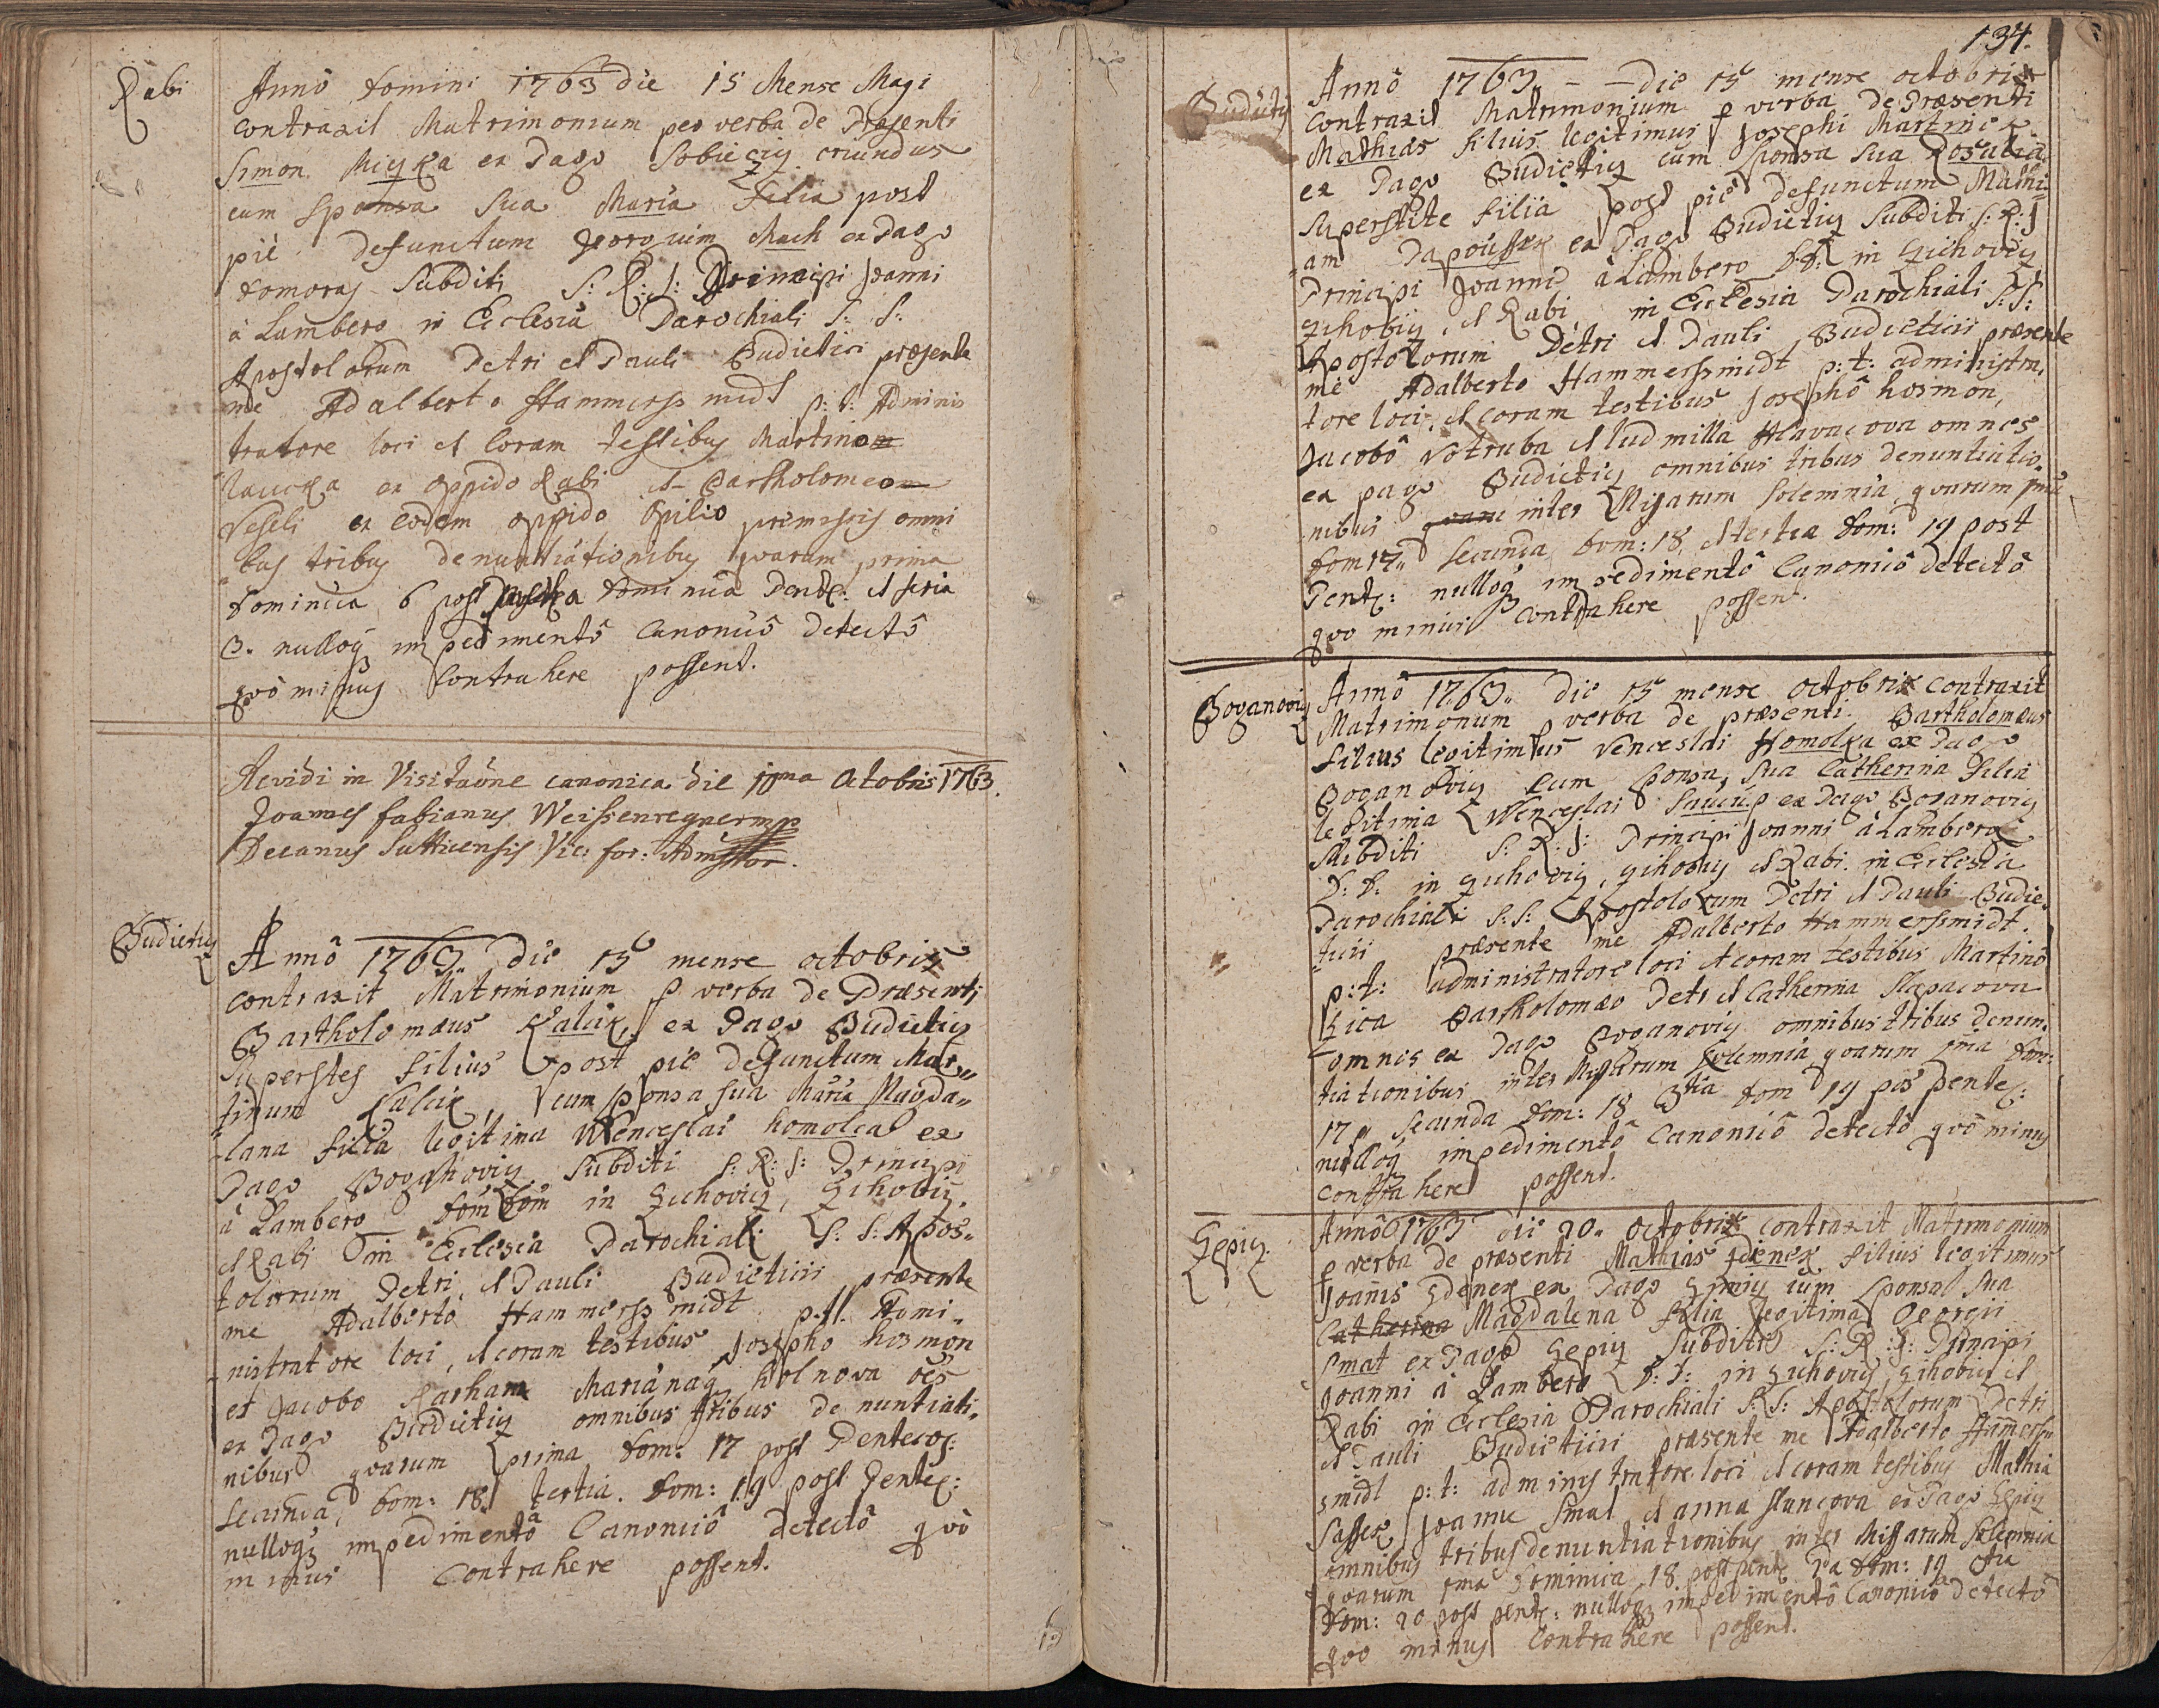 Rabi
Annô Domini 1763 die 15 Mense Magi
contraxit Matrimonium per verba de Præsenti
Simon Miczka ex Pago Sobieczy oriundus
cum Sponsa sua Maria Filia post
piè defunctum Georgium Mach ex Pago
Domoraz Subditi S: R: I: Principi Joanni
à Lamberg in Ecclesia Parochiali S: S:
Apostolorum Petri et Pauli Budieticii præsente
me Adalberto Hammerssmidt p: t: Adminis
tratore loci et Coram testibus Martino
ex oppido Rabi et Bartholomeo
Veseli ex eodem oppido Opilio premissis omni
bus tribus denuntiationibus quarum prima
Dominica 6 post Pascha Dominica Pente: et feria
3. nulloq impedimentô Canonicô detectô
quò minus Contrahere possent.
Revidi in Visitaõne canonica die 10ma Octobris 1763.
Joannes Fabianus Weissenregner mp
Decanus Sutticensis Vic: for: Admstor.
Budieticz
Annô 1763 die 15 mense octobris
contraxit Matrimonium p verba de Præsenti
Bartholomæus Kalcik, ex Pago Budieticz
superstes filius post piè defunctum Mar„
tinum Kalcik, cum sponsa sua Maria Magda„
lana filia legitima Wenceslai homolca ex
Pago Boganovicz Subditi S: R: I: Principi
à Lamberg Dom Dom in Zichovicz, Zihobicz,
et Rabi in Ecclesia Parochiali S: S: Apos„
tolorum Petri, et Pauli Budieticii præsente
me Adalberto Hammerssmidt p: t: Admi„
nistratore loci, et coram testibus Josepho hosmon
et Jacobo Marianaq holnova oẽs
ex Pago Budieticz omnibus tribus denuntiati„
nibus quarum prima Dom: 17 post Pentecos:
Secunda, Dom: 18 tertia. Dom: 19 post Pente:
nulloq impedimentô Canonicô detectô quò
minus Contrahere possent.
134.
Budieticz
Annô 1763 – – die 15 mense octobris
contraxit Matrimonium p verba de Præsenti
Mathias filius legitimus Josephi Martinek
ex Pago Budieticz cum Sponsa sua Rosalia
superstite filia post piè defunctum Mathi„
am Papoussek ex Pago Budieticz Subditi S: R: I
Principi Joanni à Lamberg D: D: in Zichovicz
Zihobicz, et Rabi in Ecclesia Parochiali S: S:
Apostolorum Petri et Pauli Budieticii præsente
me Adalberto Hammerssmidt p: t: administra„
tore loci, et coram testibus Josephô hosmon,
Jacobô Votruba et ludmilla Hlavacova omnes
ex pago Budieticz omnibus tribus denuntiatio„
nibus inter Missarum solemnia, quarum
Dom 17„ Secunda Dom: 18, et tertia Dom: 19 post
Pente: nulloq impedimentô Canonicô detectô
quo minus contrahere possent.
Boganovicz
Annô 1763„ die 15 mense octobris contraxit
Matrimonum p verba de præsenti Bartholomæus
filius legitimus Venceslai Homolka ex Pago
Boganovicz cum sponsa, sua Catherina Filia
legitima Wenceslai ex Pago Boganovicz
Subditi S: R: I: Principi Joanni à Lamberg
D: D: in Zichovicz, Zihobicz et Rabi in Ecclesia
Parochiali S: S: Apostolorum Petri et Pauli Budie„
ticii præsente me Adalberto Hammerssmidt.
p: t: administratore loci et coram testibus Martino
Zica Bartholomæo Petr et Catherina
omnes ex Pago Boganovicz omnibus tribus denun„
tiationibus inter Missarum solemnia quarum 1ma Dom:
17„ Secunda Dom: 18 3tia Dom 19 pos Pente:
nulloq impedimentô Canonicô detectô quò minus
contrahere possent.
Zepicz
Annô 1763 die 20. octobris contraxit Matrimonium
p verba de præsenti Mathias Zdenek filius legitimus
Joanis Zdenek ex Pago Zepicz cum Sponsa sua
Catherina Magdalena filia legitima Georgii
Smat ex Pago Zepicz Subditi S: R: I: Principi
Joanni à Lamberg D: D: in Zichovicz, Zihobicz et
Rabi in Ecclesia Parochiali S: S: Apostolorum Petri
et Pauli Budieticii præsente me Adalberto Ham̃erss„
smidt p: t: administratore loci et coram testibus Mathia
Sassek Joanne Smat et anna ex Pago Zepicz
omnibus tribus denuntiationibus inter Missarum solemnia
quarum 1ma Dominica 18 post pente 2da Dom: 19 3tia
Dom: 20 post pente: nulloq impedimentô Canonicô detectô
quo minus Contrahere possent.